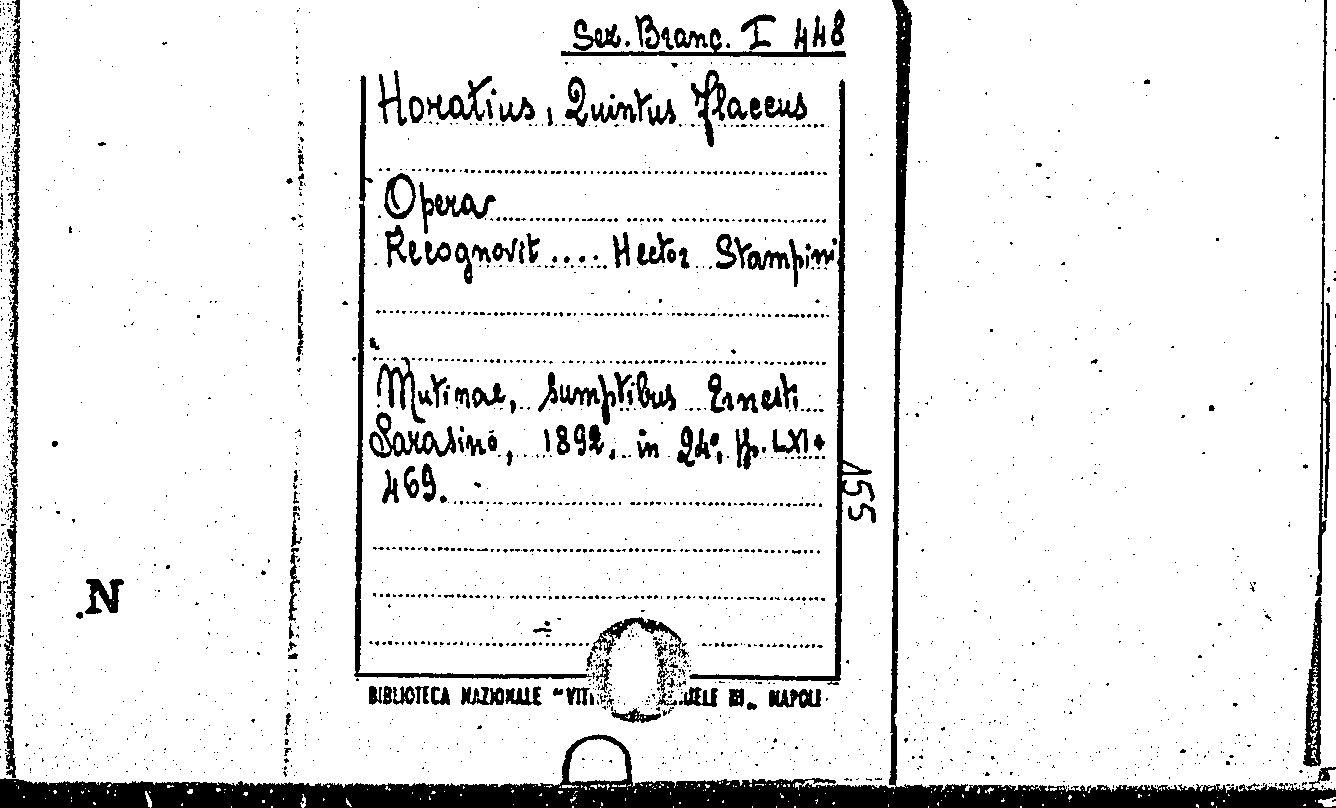 Sez. Branc. I 448
Horatius, Quintus Flaccus
Opera
Recognovit .... Hector Stampini
Mutinae, sumptibus Ernesti
Sarasino, 1892, in 24°, pp. LXI+
469.
155
N
BIBLIOTECA NAZIONALE "VITT
NAPOLI